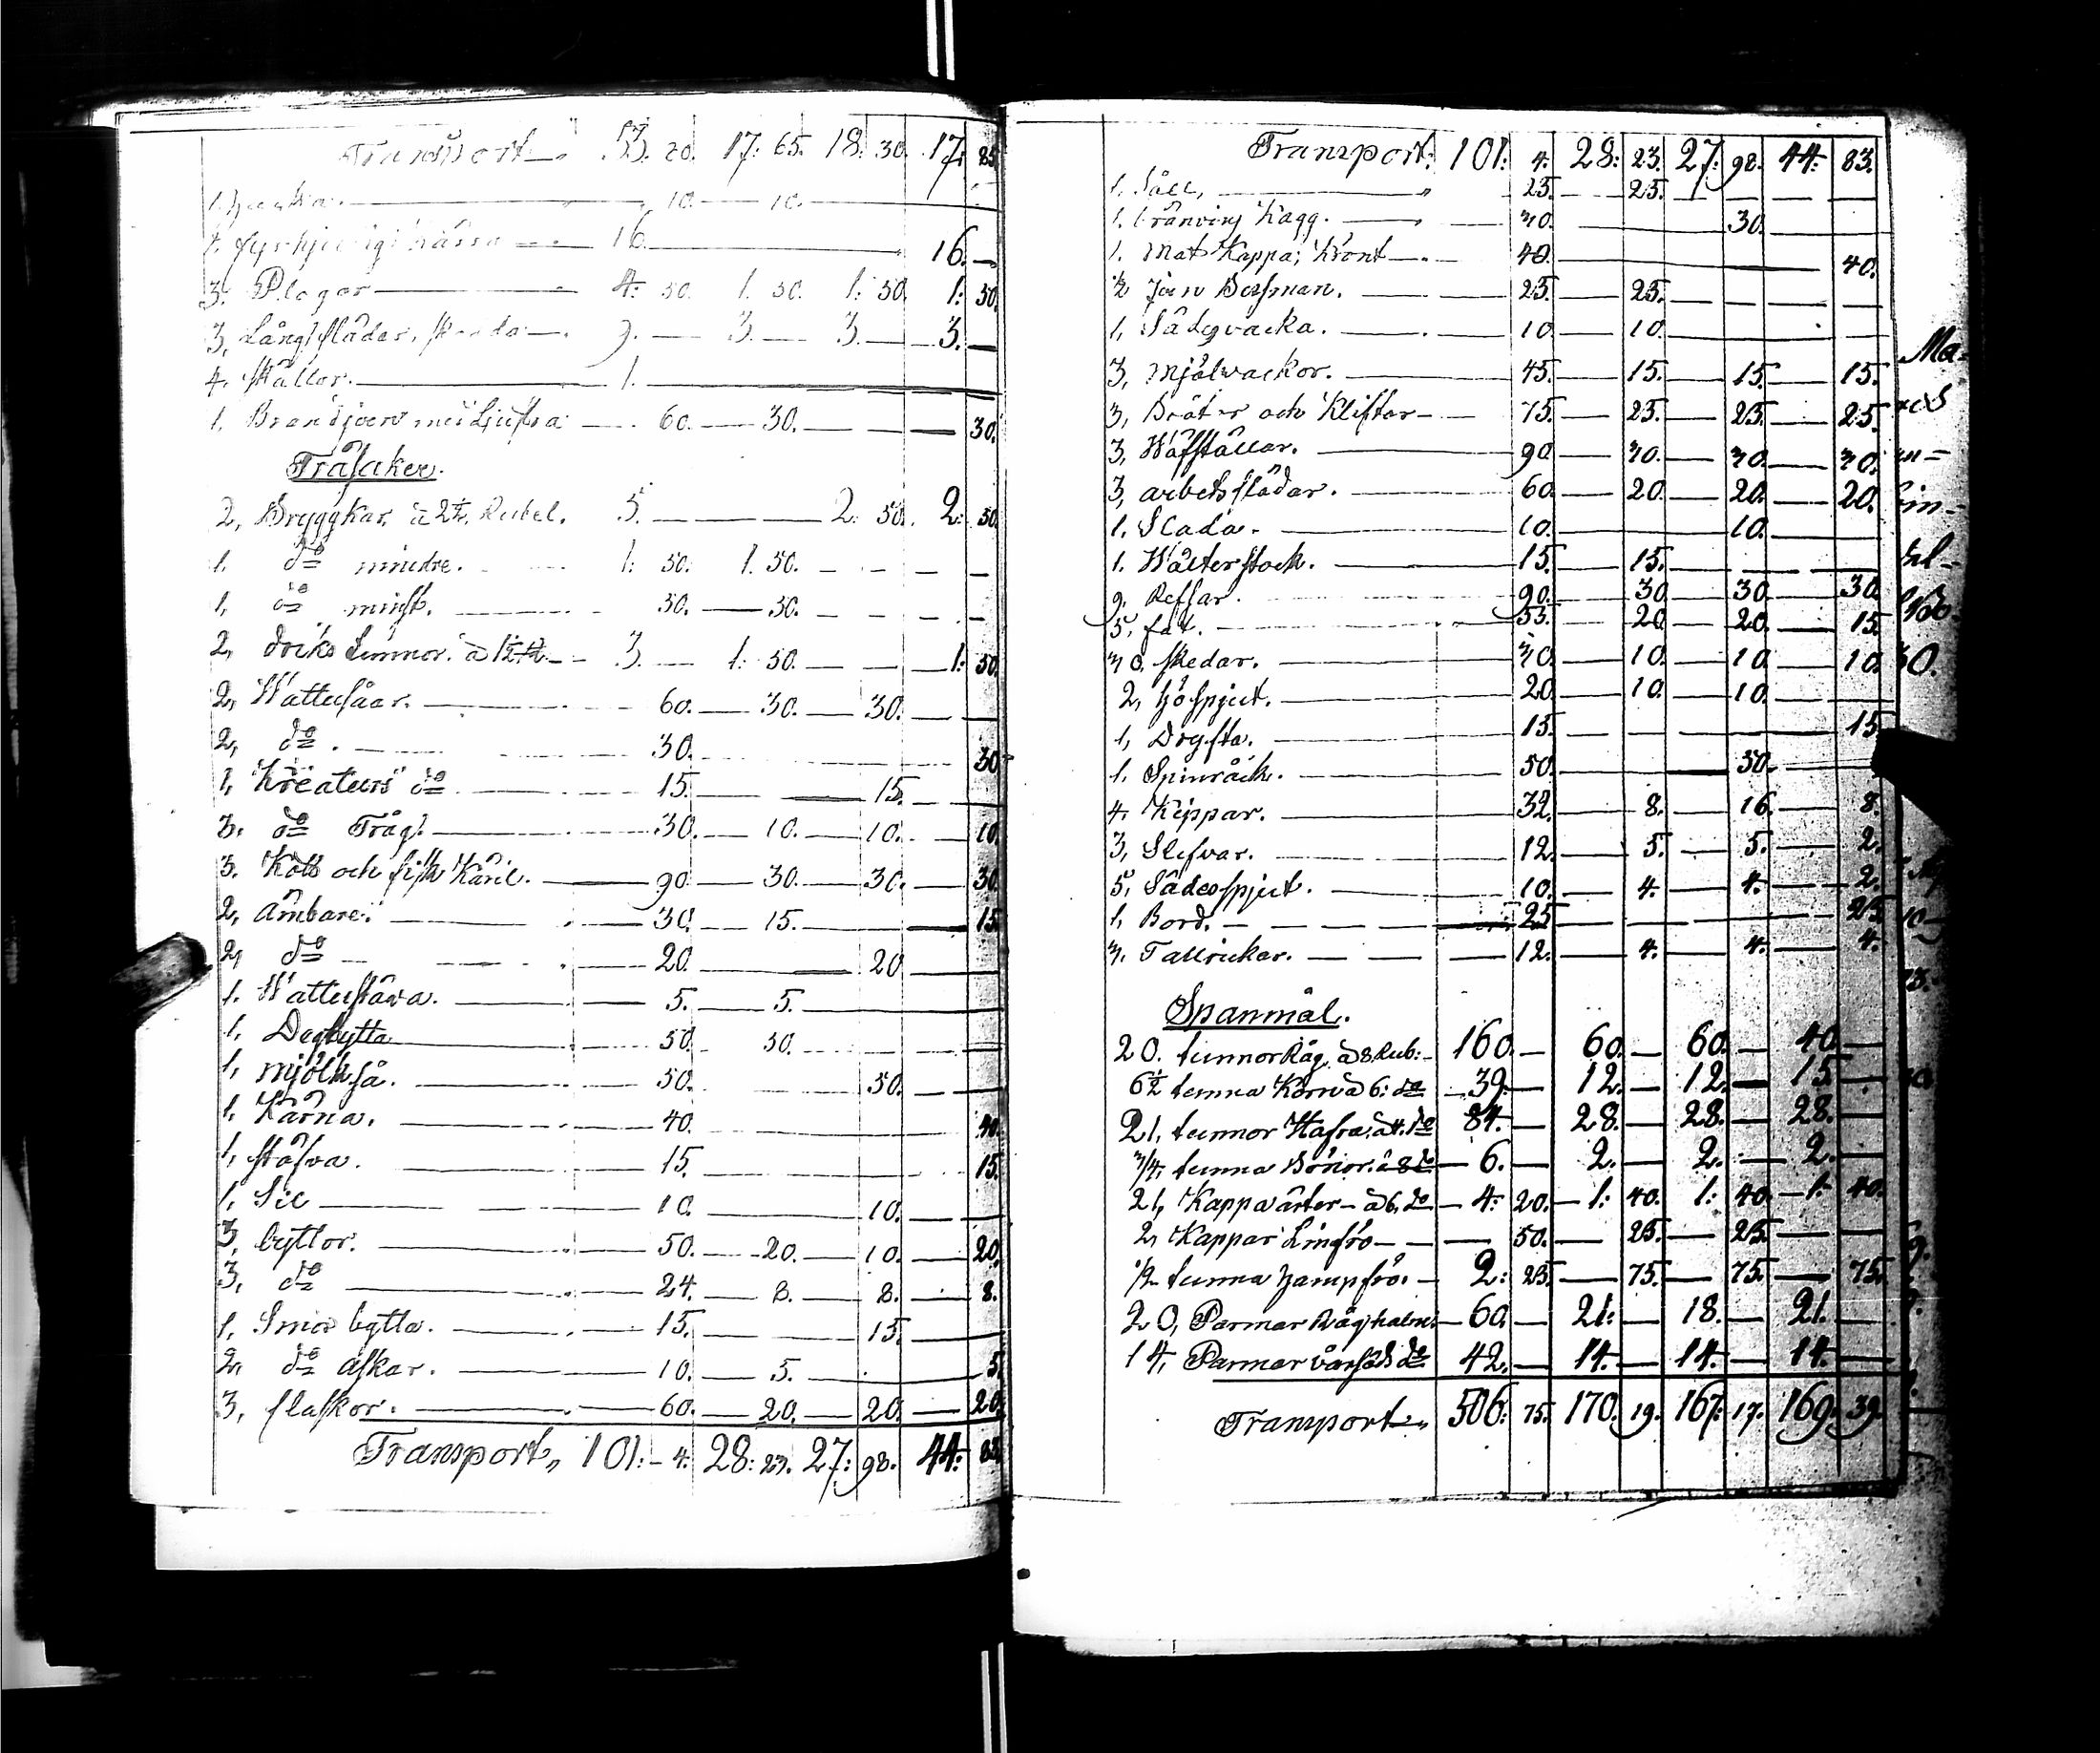 Transport 53. 20. 17: 65. 18: 30. 17: 85
1. — 10. — 10.
1. 16. 16. —
3. Plogar — 4: 50. 1. 50. 1: 50. 1: 50.
3, Långslädar, — 9. — 3. — 3. — 3. —
4. — 1.
1. Brandjern med Ljustra — 60. — 30. — 30.
Träsaker.
2, Bryggkar à 2½ Rubel. 5. — 2: 50. 2: 50
1. do mindre. 1: 50. 1. 50. — — —
1. do minst. — 50. — 50. — — —
2, Tunnor. à 1½ — 3. — 1: 50. — 1: 50
2, Wattusåar. — 60. — 30. — 30. —
2, do. — 30. 30
1, Kreaturs do — 15. — 15. —
3. do Tråg. — 30. — 10. — 10. — 10
3. Kött och fisk Käril. — 90. — 30. — 30. — 30.
2, Ämbare. — 30. — 15. — 15
2, do — 20. — 20
1. Wattuskåva. — 5. — 5.
1, Degbytta — 50. 50.
1, mjölkså. — 50. 50. —
1. Kärna. — 40. 40.
1, Stäfva. — 15. 15.
1, Sil — 10. 10. —
3, byttor. — 50. — 20. — 10. — 20.
3, do — 24. — 8. — 8. — 8.
1, Smör bytta. — 15. 15. —
2, do askar. — 10. — 5. 5
3, flaskor. — 60. — 20. — 20. — 20
Transport, 101. 4. 28: 23. 27: 98. 44: 83
Transport: 101: 4. 28: 23. 27: 98. 44: 83.
1. Såll, — 25. — 25. — — —
1. bränvins Kagg. — 30. 30. —
1. Mat Kappa, Krönt — 40. 40.
½ Jern Besman. — 25. — 25. — — —
1, Sädesvacka. — 10. — 10. —
3, mjölvackor. — 45. — 15. — 15. — 15.
3, Bråtar och Kliftar — 75. — 25. — 25. — 25.
3, Wäfställar. — 90. — 30. — 30. — 30.
3, arbetsslädar. — 60. — 20. — 20. — 20.
1. Slada. — 10. — 10.
1. Wälterstock. — 15. — 15. — — —
9. Refsar. — 90. 30. — 30. — 30.
5, fat. — 55. — 20. — 20. — 15
30. skedar. — 30. — 10. — 10. — 10.
2, höspjut. — 20. — 10. — 10. —
1, Drysta. — 15. — — — 15
1. Spinråck. — 50. — 50. —
4. Kippar. — 32. — 8. — 16. — 8.
3, Slefvar. — 12. — 5. — 5. — 2.
5, Sädesspjut. — 10. — 4. — 4. — 2.
1, Bord. — 25 — — — 25
3. Tallrickar. — 12. — 4. — 4. — 4.
Spanmål.
20. tunnor Råg. à 8 Rub: — 160. — 60. — 60. — 40. —
6½ tunna Korn à 6: do — 39. — 12. — 12. — 15. —
21, tunnor Hafra, à 4. do 84. — 28. — 28. — 28. —
3/4, tunna Bönor. à 8 do — 6. — 2. — 2. — 2. —
21, Kappa ärter — à 6, do — 4: 20. — 1: 40. 1: 40. — 1: 40.
2, Kappar Linfrö — 50. — 25. — 25. —
½ tunna hampfrö. — 2: 25. — 75. — 75. — 75.
20, Parmar Råghalm. — 60. — 21. — 18. — 21. —
14, Parmar vårsäds do 42. — 14. — 14. — 14. —
Transport, 506: 75. 170. 19. 167: 17. 169. 39